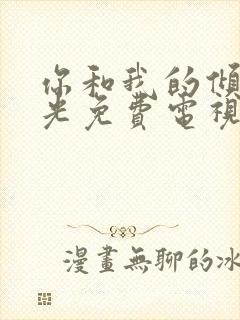 你和我的傾
光免費電視
漫畫無聊的冰